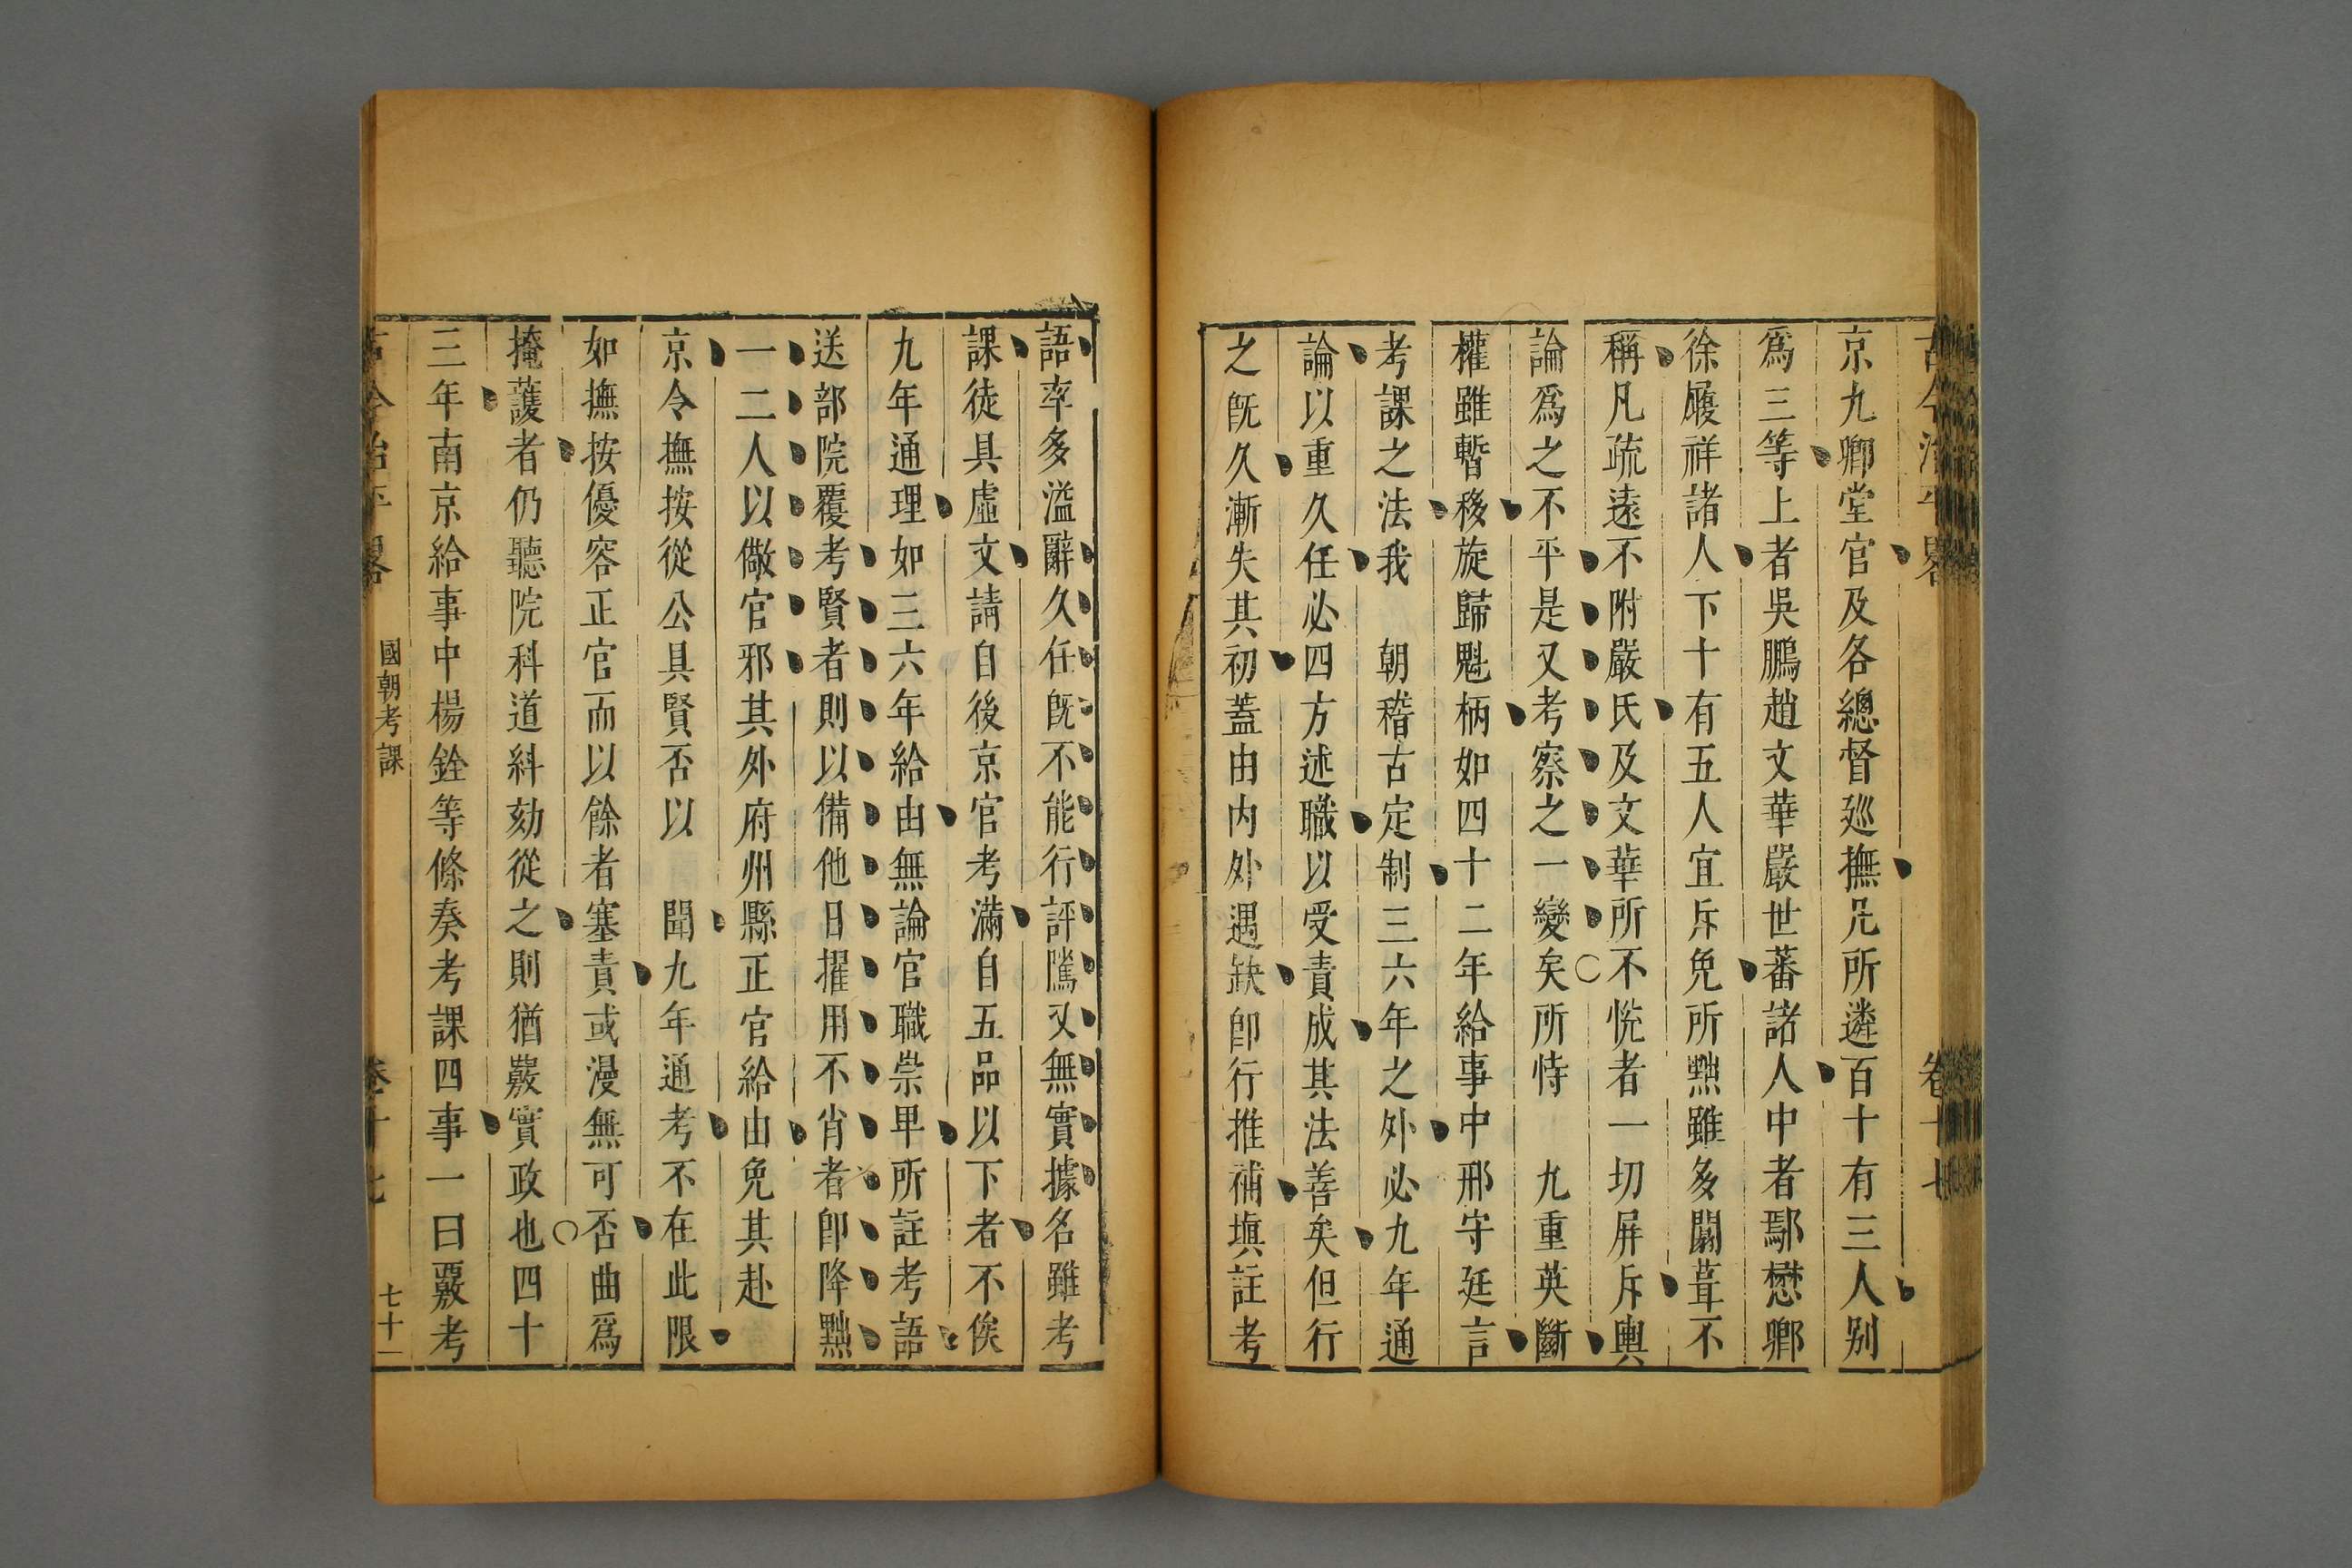 古今治平畧 卷十七
京九卿堂官及各總督廵撫凡所遴百十有三人别
爲三等上者吳鵬趙文華嚴世蕃諸人中者鄢懋卿
徐履祥諸人下十有五人宜斥免所黜雖多闒茸不
稱凡疏遠不附嚴氏及文華所不悦者一切屏斥輿
論爲之不平是又考察之一變矣所恃 九重英斷
權雖暫移旋歸魁柄如四十二年給事中邢守廷言
考課之法我 朝稽古定制三六年之外必九年通
論以重久任必四方述職以受責成其法善矣但行
之旣久漸失其初蓋由内外遇缺卽行推補塡註考
語率多溢辭久任旣不能行評隲又無實據名雖考
課徒具虛文請自後京官考滿自五品以下者不俟
九年通理如三六年給由無論官職崇卑所註考語
送部院覆考賢者則以備他日擢用不肖者卽降黜
一二人以儆官邪其外府州縣正官給由免其赴
京令撫按從公具賢否以 聞九年通考不在此限
如撫按優容正官而以餘者塞責或漫無可否曲爲
掩護者仍聽院科道糾劾從之則猶覈實政也四十
三年南京給事中楊銓等條奏考課四事一曰覈考
古今治平畧 國朝考課 卷十七 七十一